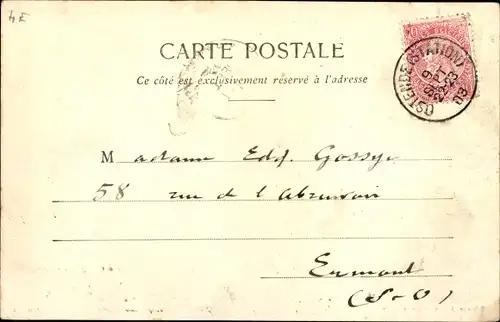 4E
CARTE POSTALE
Ce côté est exclusivement réservé à l'adresse
OSTENDE (STATION)
9
22-23
03
Madame Edg. Gossye
58 rue de l'abreuvoir
Ermont
(S-O)